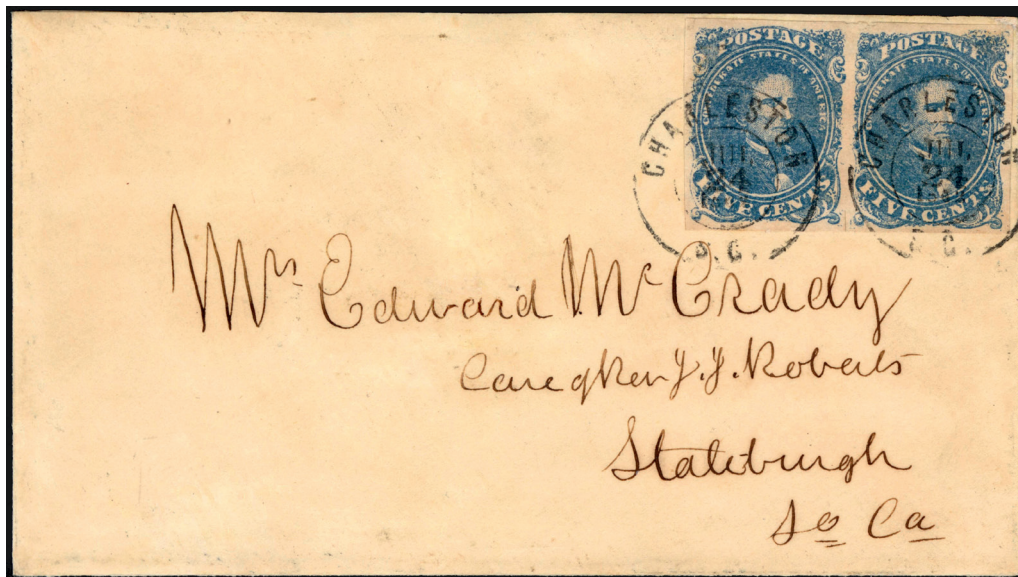 POSTAGE
CONFEDERATE STATES OF AMERICA
FIVE CENTS
POSTAGE
CONFEDERATE STATES OF AMERICA
FIVE CENTS
CHARLESTON
JUL
24
S.C.
CHARLESTON
JUL
24
S.C.
Mrs Edward McCrady
Care of Rev J. J. Roberts
Stateburgh
So Ca